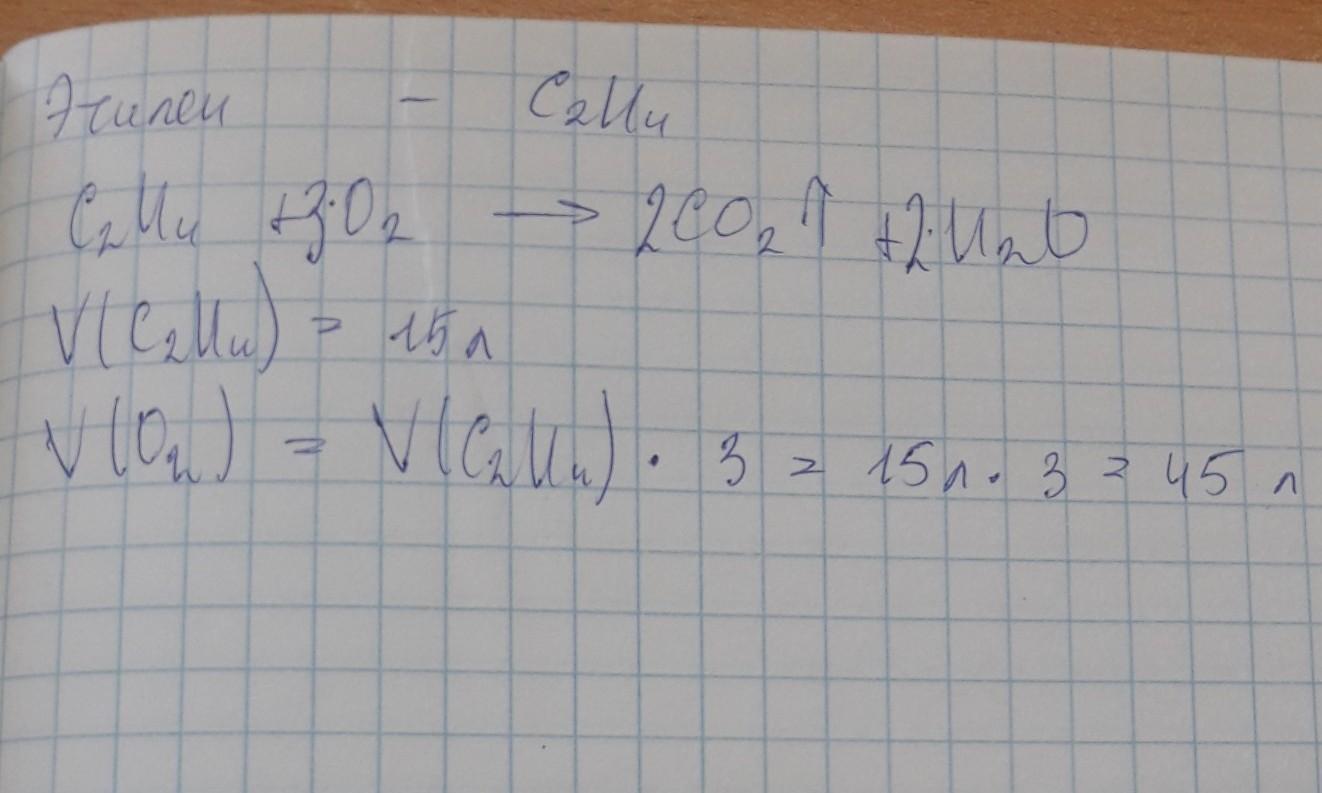 Этилен - C₂H₄
C₂H₄ +3·O₂ → 2CO₂↑ +2·H₂O
V(C₂H₄) = 15 л
V(O₂) = V(C₂H₄) · 3 = 15 л · 3 = 45 л